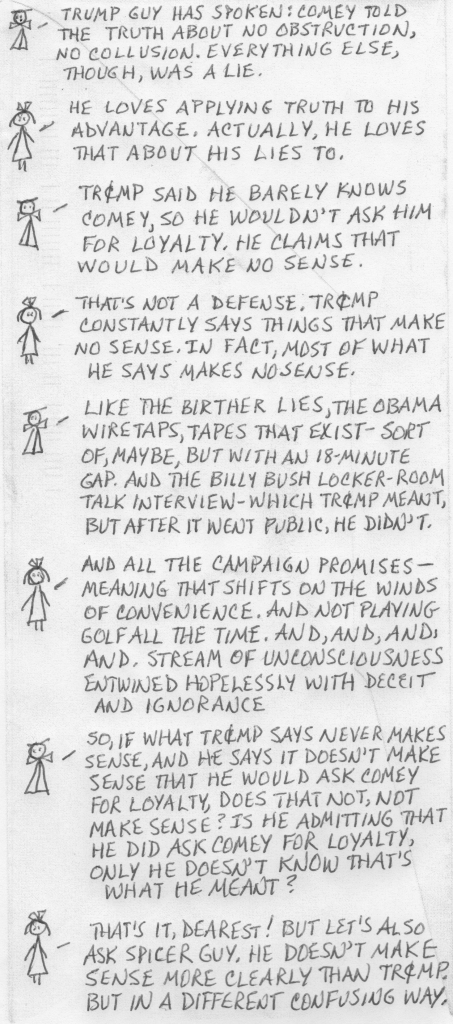 TRUMP GUY HAS SPOKEN: COMEY TOLD
THE TRUTH ABOUT NO OBSTRUCTION,
NO COLLUSION. EVERYTHING ELSE,
THOUGH, WAS A LIE.
HE LOVES APPLYING TRUTH TO HIS
ADVANTAGE. ACTUALLY, HE LOVES
THAT ABOUT HIS LIES TO.
TR₵MP SAID HE BARELY KNOWS
COMEY, SO HE WOULDN'T ASK HIM
FOR LOYALTY. HE CLAIMS THAT
WOULD MAKE NO SENSE.
THAT'S NOT A DEFENSE. TR₵MP
CONSTANTLY SAYS THINGS THAT MAKE
NO SENSE. IN FACT, MOST OF WHAT
HE SAYS MAKES NO SENSE.
LIKE THE BIRTHER LIES, THE OBAMA
WIRETAPS, TAPES THAT EXIST - SORT
OF, MAYBE, BUT WITH AN 18-MINUTE
GAP. AND THE BILLY BUSH LOCKER-ROOM
TALK INTERVIEW - WHICH TR₵MP MEANT,
BUT AFTER IT WENT PUBLIC, HE DIDN'T.
AND ALL THE CAMPAIGN PROMISES -
MEANING THAT SHIFTS ON THE WINDS
OF CONVENIENCE. AND NOT PLAYING
GOLF ALL THE TIME. AND, AND, AND,
AND. STREAM OF UNCONSCIOUSNESS
ENTWINED HOPELESSLY WITH DECEIT
AND IGNORANCE
SO, IF WHAT TR₵MP SAYS NEVER MAKES
SENSE, AND HE SAYS IT DOESN'T MAKE
SENSE THAT HE WOULD ASK COMEY
FOR LOYALTY, DOES THAT NOT, NOT
MAKE SENSE? IS HE ADMITTING THAT
HE DID ASK COMEY FOR LOYALTY,
ONLY HE DOESN'T KNOW THAT'S
WHAT HE MEANT?
THAT'S IT, DEAREST! BUT LET'S ALSO
ASK SPICER GUY. HE DOESN'T MAKE
SENSE MORE CLEARLY THAN TR₵MP.
BUT IN A DIFFERENT CONFUSING WAY.